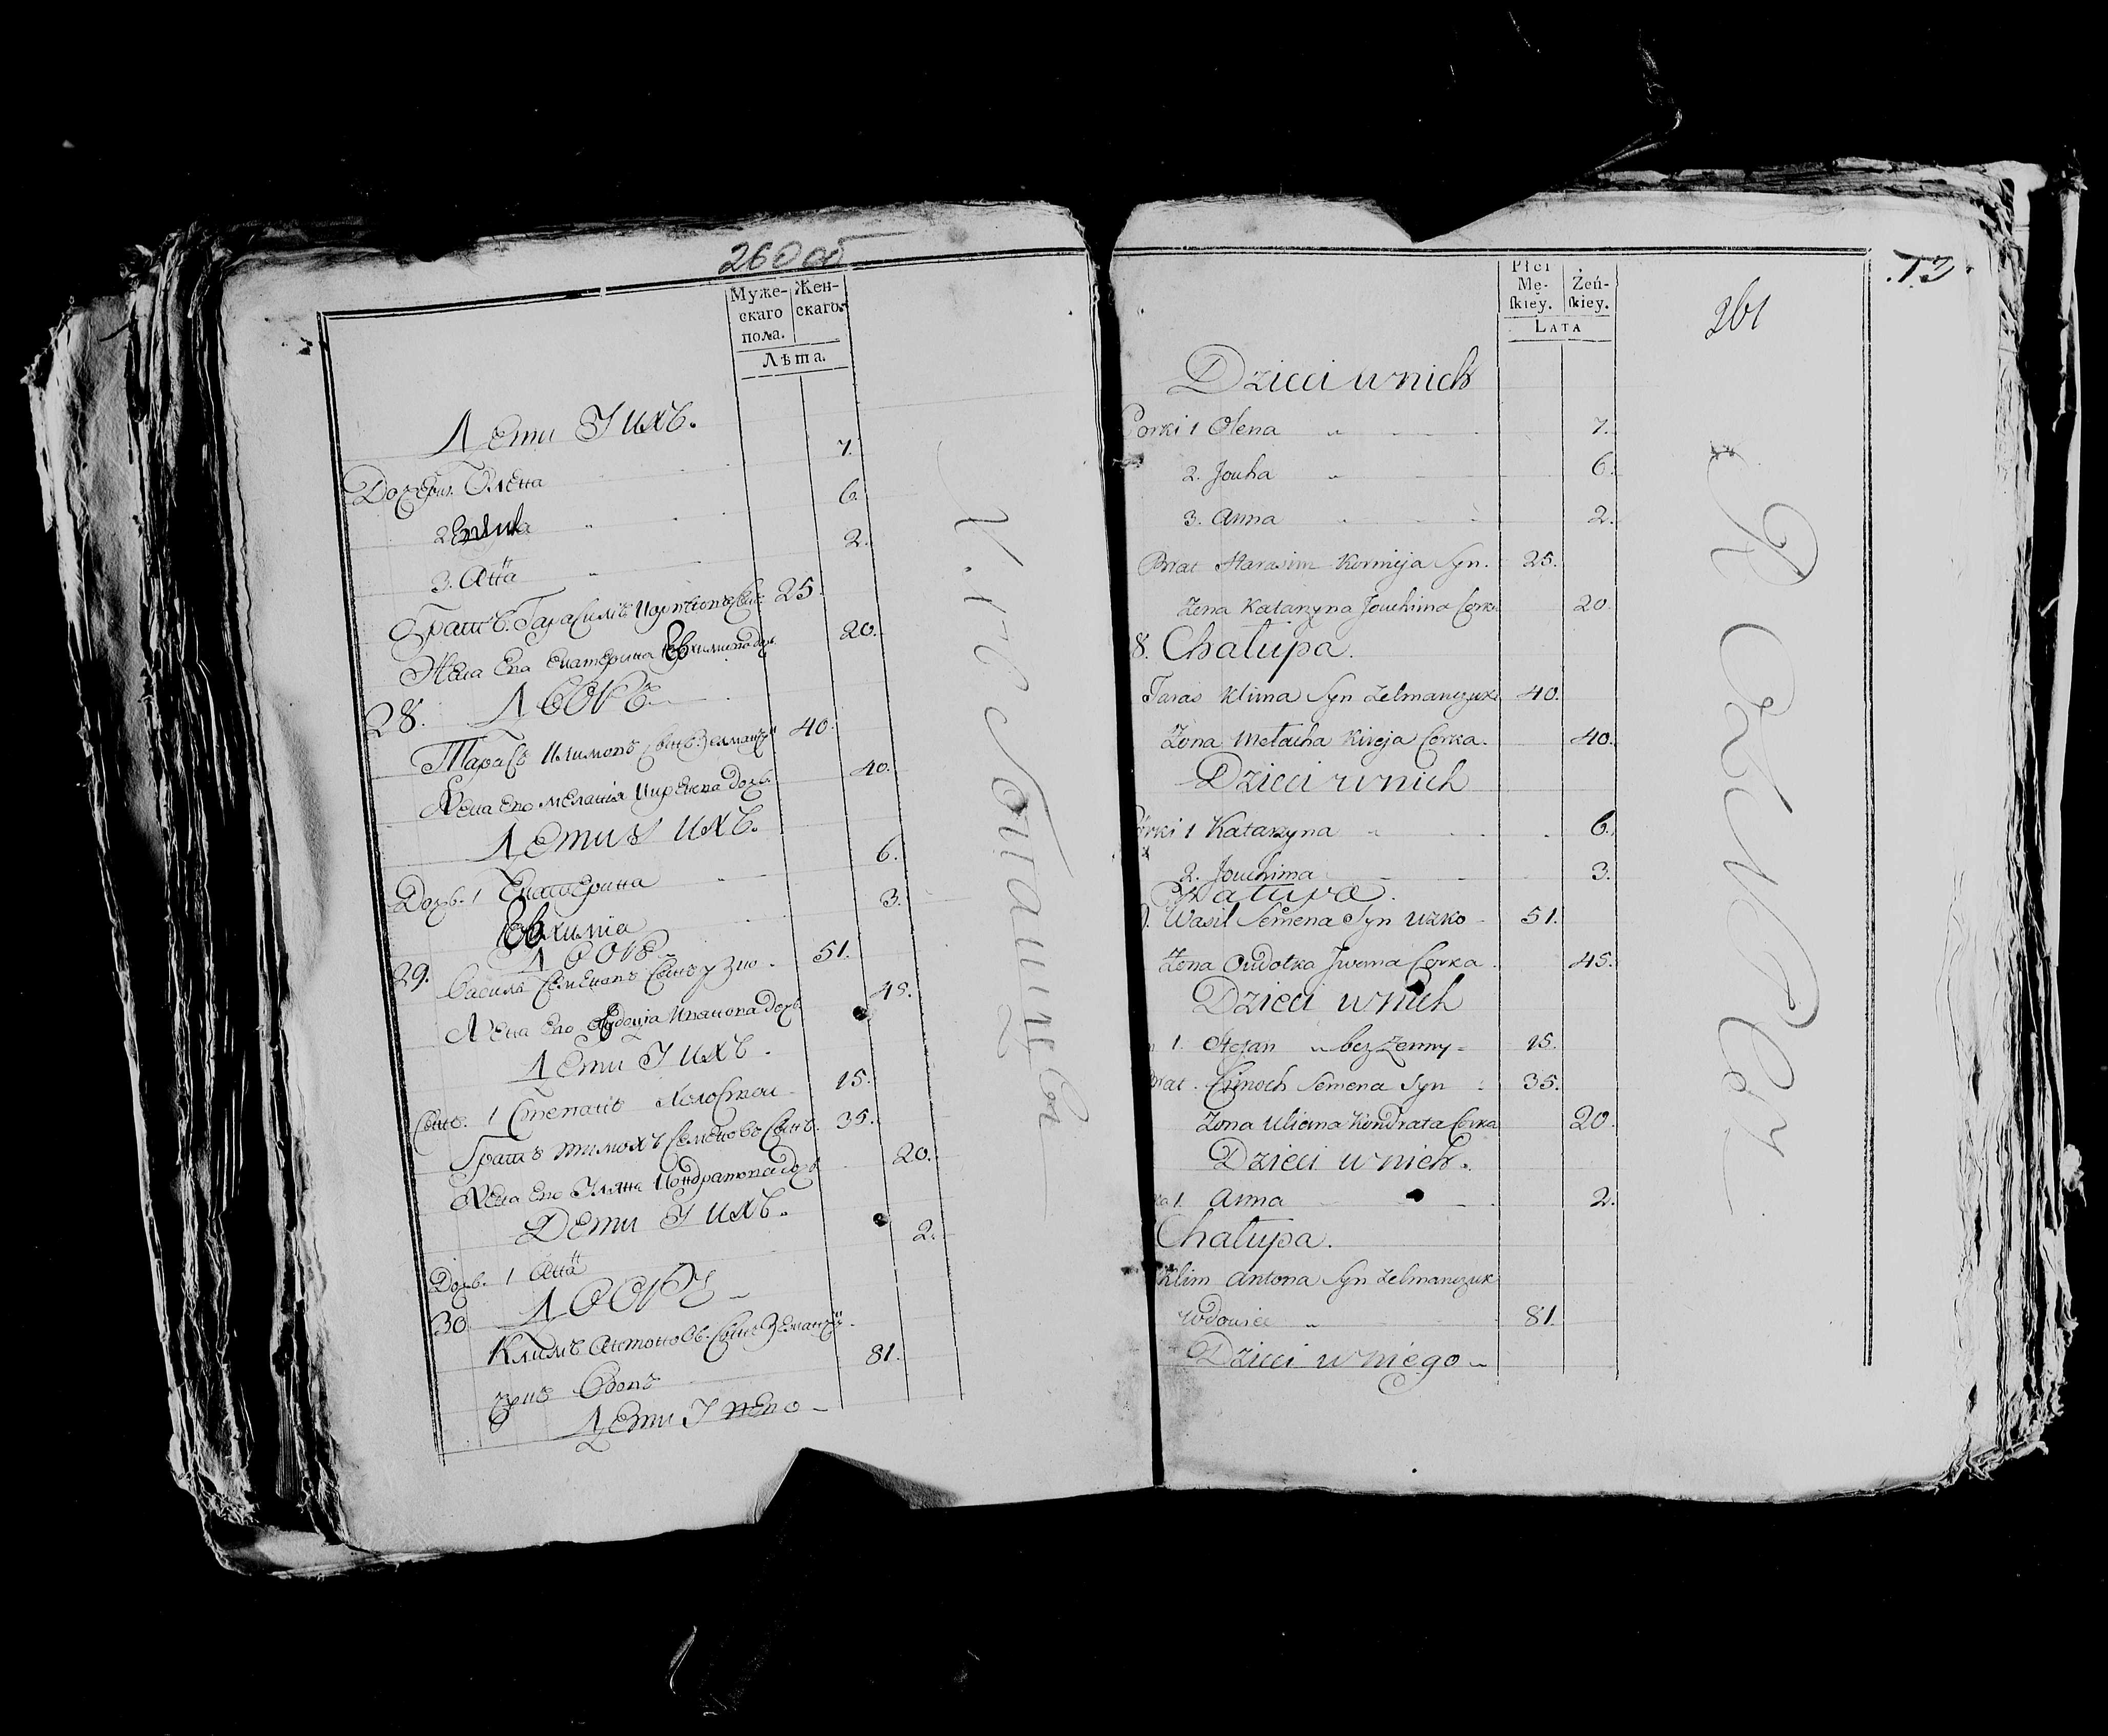 260 об
Муже-
скаго
пола.
Жен-
скаго.
Лѣта.
Дети Ихъ.
Дочери. Олена 7.
2. 6.
3. Анна 2.
Братъ. Гарасимъ сынъ 25.
Жена Его Екатерина Евхимова дочь 20.
28. Дворъ
Тарасъ Климовъ сынъ Зелманчу 40.
Жена Его Меланія дочь 40.
Дети Ихъ.
Дочь. 1 Екатерина 6.
Евхимиа 3.
Дворъ
29. Василь Семеновъ Сынъ Узко 51.
Жена Его Авдоція Иванова дочь 45.
Дети Ихъ.
Сынъ. 1 Степанъ Холостой 15.
Братъ Тимохъ Семеновъ Сынъ. 35.
Жена Его Уляна Кондратова дочь 20.
Дети Ихъ.
Дочь. 1 Анна 2.
30. Дворъ
Климъ Антоновъ Сынъ Зелманчу
Вдовъ 81.
Дети У Него
Płci
Mę-
ſkiey.
Żeń-
ſkiey.
LATA
261
13.
Dzieci u nich
Corki 1 Olena 7.
2. Jouha 6.
3. Anna 2.
Brat Harasim Kornieja Syn. 25.
Żona Katarzyna Jouchima Corka 20.
8. Chałupa.
Taras Klima Syn Zelmanczuk 40.
Żona Mełacha Kireja Corka. 40.
Dzieci u nich
Córki 1 Katarzyna 6.
2. Jouchima 3.
Chałupa.
Wasil Semena Syn Uzko 51.
Żona Oudotka Jwana Corka. 45.
Dzieci u nich
1. Stefan bez Żenny 15.
Brat. Cimoch Semena Syn 35.
Żona Uliana Kondrata Corka 20.
Dzieci u nich.
1. Anna 2.
Chałupa.
Klim Antona Syn Zelmanczuk
Wdowiec 81.
Dzieci u niego